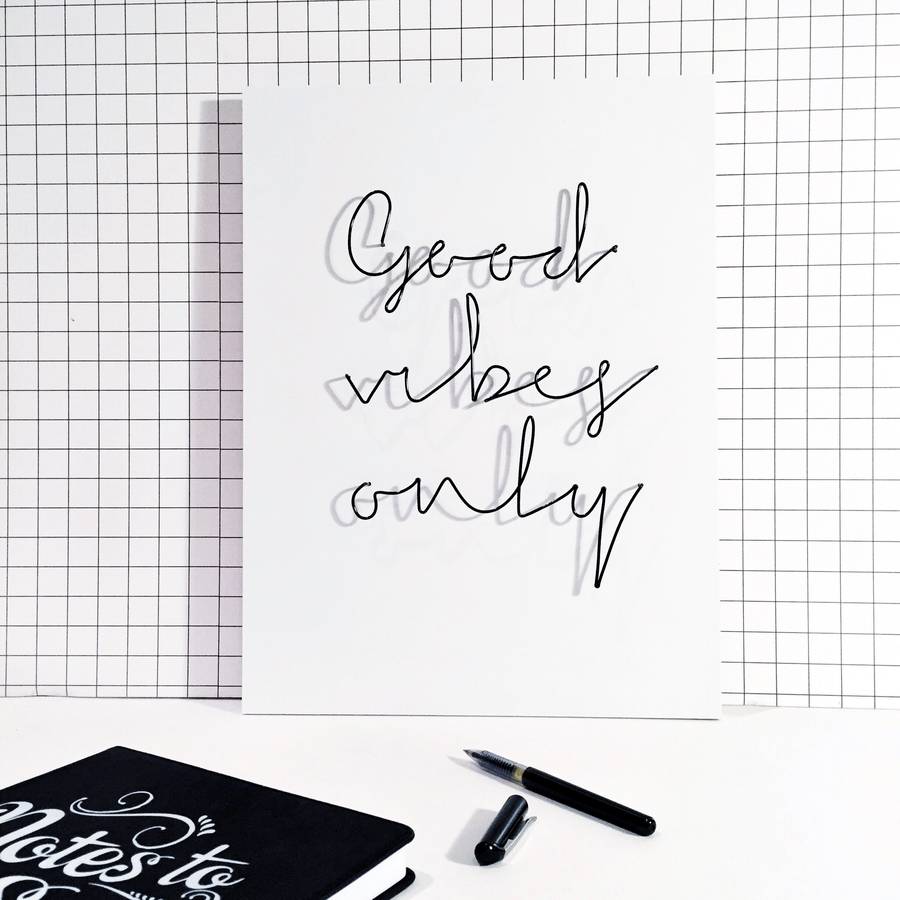 Good
vibes
only
Notes to